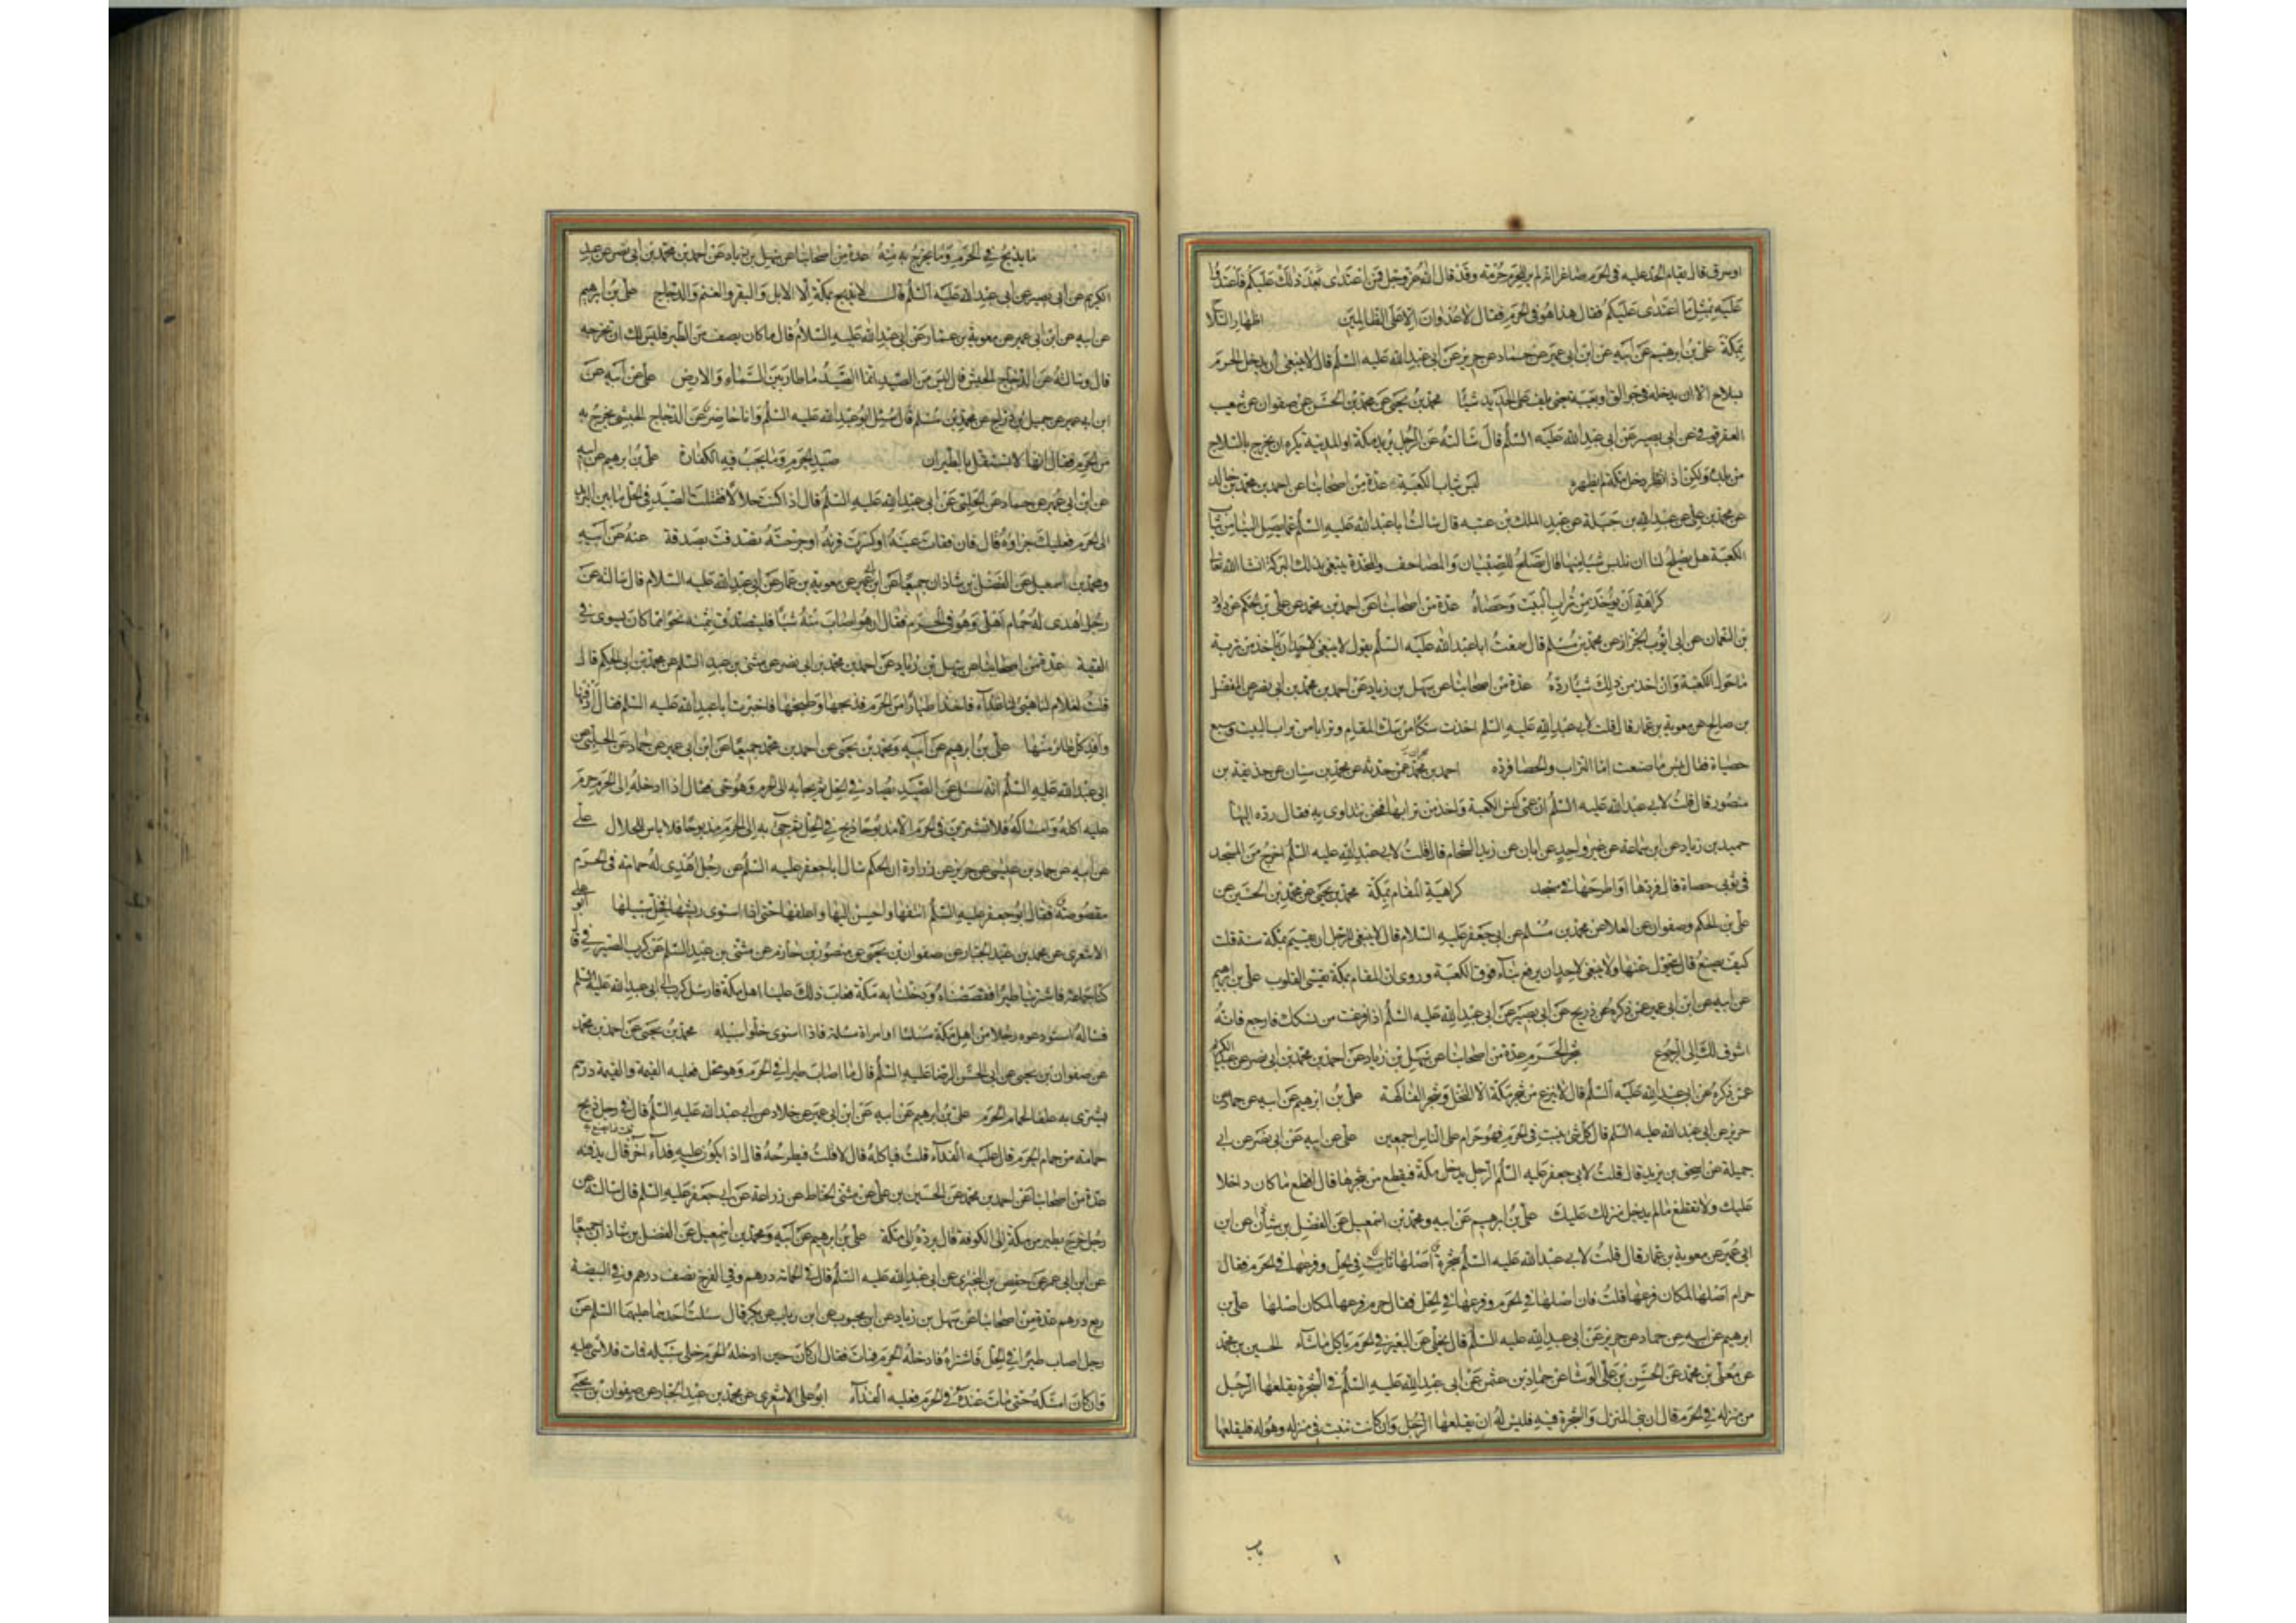 او سرق قال يقام الحد عليه في الحرم صاغرا انه لم ير للحرم حرمته وقد قال الله عز وجل فمن اعتدى بعد ذلك عليكم فاعتدوا
عليه بمثل ما اعتدى عليكم فقال هذا هو في الحرم فقال لا عدوان الا على الظالمين اظهار السلا
بمكة علي بن ابرهيم عن ابيه عن ابن ابي عمير عن حماد عن حريز عن ابي عبد الله عليه السلم قال لا ينبغي ان يدخل الحرم
بسلاح الا ان يدخله في جوالق او يغيبه يعني يلف على الحديد شيئا محمد بن يحيى عن محمد بن الحسين عن صفوان عن شعيب
العقرقوفي عن ابي بصير عن ابي عبد الله عليه السلم قال سالته عن الرجل يريد مكة او المدينة يكره ان يخرج بالسلاح
من بلده ولكن اذا دخل مكة لم يظهره لبس ثياب الكعبة عدة من اصحابنا عن احمد بن محمد بن خالد
عن محمد بن علي عن عبد الله بن جبلة عن عبد الملك بن عتبه قال سالت ابا عبد الله عليه السلم عما يصل الينا من ثياب
الكعبة هل يصلح لنا ان نلبس شيئا منها قال يصلح للصبيان والمصاحف والمخدة يبتغي بذلك البركة انشا الله تعا
كراهة ان يؤخذ من تراب البيت وحصاه عدة من اصحابنا عن احمد بن محمد عن علي بن الحكم عن داود
بن النعمان عن ابي ايوب الخزاز عن محمد بن مسلم قال سمعت ابا عبد الله عليه السلم يقول لا ينبغي لاحد ان ياخذ من تربة
ما حول الكعبة وان اخذ من ذلك شيئا رده عدة من اصحابنا عن سهل بن زياد عن احمد بن محمد بن ابي نصر عن المفضل
بن صالح عن معوية بن عمار قال قلت لابي عبد الله عليه السلم اخذت سكا من سك المقام وترابا من تراب البيت وسبع
حصياة فقال بئس ما صنعت اما التراب والحصا فرده احمد بن محمد عمن حدثه عن محمد بن سنان عن حذيفة بن
منصور قال قلت لابي عبد الله عليه السلم ان عمي كنس الكعبة واخذ من ترابها فنحن نتداوى به فقال رده اليها
حميد بن زياد عن ابن سماعة عن غير واحد عن ابان عن زيد الشحام قال قلت لابي عبد الله عليه السلم اخرج من المسجد
في ثوبي حصاة قال فردها او اطرحها في مسجد كراهية المقام بمكة محمد بن يحيى عن محمد بن الحسين عن
علي بن الحكم وصفوان عن العلا عن محمد بن مسلم عن ابي جعفر عليه السلام قال لا ينبغي للرجل ان يقيم بمكة سنة قلت
كيف يصنع قال يتحول عنها ولا ينبغي لاحد ان يرفع بناء فوق الكعبة وروى ان المقام بمكة يقسي القلوب علي بن ابرهيم
عن ابيه عن ابن ابي عمير عمن ذكره عن ذريح عن ابي بصير عن ابي عبد الله عليه السلم اذا فرغت من نسكك فارجع فانه
اشوق لك الى الرجوع شجر الحرم عدة من اصحابنا عن سهل بن زياد عن احمد بن محمد بن ابي نصر عن عبد الكريم
عمن ذكره عن ابي عبد الله عليه السلم قال لا ينزع من شجر مكة الا النخل وشجر الفاكهة علي بن ابرهيم عن ابيه عن حماد عن
حريز عن ابي عبد الله عليه السلم قال كل شئ ينبت في الحرم فهو حرام على الناس اجمعين علي عن ابيه عن ابي نصر عن ابي
جميلة عن اسحق بن يزيد قال قلت لابي جعفر عليه السلم الرجل يدخل مكة فيقطع من شجرها قال اقطع ما كان داخلا
عليك ولا تقطع ما لم يدخل منزلك عليك علي بن ابرهيم عن ابيه ومحمد بن اسمعيل عن الفضل بن شاذان عن ابن
ابي عمير عن معوية بن عمار قال قلت لابي عبد الله عليه السلم شجرة اصلها ثابت في الحل وفرعها في الحرم فقال
حرام اصلها لمكان فرعها قلت فان اصلها في الحرم وفرعها في الحل فقال حرم فرعها لمكان اصلها علي بن
ابرهيم عن ابيه عن حماد عن حريز عن ابي عبد الله عليه السلم قال يخلى عن البعير في الحرم ياكل ما شاء الحسين بن محمد
عن معلى بن محمد عن الحسن بن علي الوشا عن حماد بن عثمن عن ابي عبد الله عليه السلم في الشجرة يقلعها الرجل
من منزله في الحرم قال ان بنى المنزل والشجرة فيه فليس له ان يقلعها الرجل وان كانت نبتت في منزله وهو له فليقلعها
باب
ما يذبح في الحرم وما يخرج به منه عدة من اصحابنا عن سهل بن زياد عن احمد بن محمد بن ابي نصر عن عبد
الكريم عن ابي بصير عن ابي عبد الله عليه السلم قال لا يذبح بمكة الا الابل والبقر والغنم والدجاج علي بن ابرهيم
عن ابيه عن ابن ابي عمير عن معوية بن عمار عن ابي عبد الله عليه السلام قال ما كان يصف من الطير فليس لك ان تخرجه
قال وسالته عن الدجاج الحبش قال ليس من الصيد انما الصيد ما طار بين السماء والارض علي عن ابيه عن
ابن ابي عمير عن جميل بن دراج عن محمد بن مسلم قال سئل ابو عبد الله عليه السلم وانا حاضر عن الدجاج الحبشي يخرج به
من الحرم فقال انها لا تستقل بالطيران صيد الحرم وما يجب فيه الكفارة علي بن ابرهيم عن ابيه
عن ابن ابي عمير عن حماد عن الحلبي عن ابي عبد الله عليه السلم قال اذا كنت حلالا فقتلت الصيد في الحل ما بين البريد
الى الحرم فعليك جزاؤه قال فان فقات عينه او كسرت قرنه او جرحته تصدقت بصدقة عنه عن ابيه
ومحمد بن اسمعيل عن الفضل بن شاذان جميعا عن ابن ابي عمير عن معوية بن عمار عن ابي عبد الله عليه السلام قال سالته عن
رجل اهدى له حمام اهلي وهو في الحرم فقال ان هو اصاب منه شيئا فليتصدق بثمنه نحوا مما كان يسوى في
القيمة عدة من اصحابنا عن سهل بن زياد عن احمد بن محمد بن ابي نصر عن مثنى بن عبد السلم عن محمد بن ابي الحكم قال
قلت لغلام لنا هيئ لنا غداء فاخذ اطيارا من الحرم فذبحها وطبخها فاخبرت ابا عبد الله عليه السلم فقال ادفنها
وافد كل طائر منها علي بن ابرهيم عن ابيه ومحمد بن يحيى عن احمد بن محمد جميعا عن ابن ابي عمير عن حماد عن الحلبي عن
ابي عبد الله عليه السلم انه سئل عن الصيد يصاد في الحل ثم يجاء به الى الحرم وهو حي فقال اذا ادخله الى الحرم حرم
عليه اكله وامساكه فلا تشترين في الحرم الا مذبوحا ذبح في الحل ثم جئ به الى الحرم مذبوحا فلا باس للحلال علي
عن ابيه عن حماد بن عيسى عن حريز عن زرارة ان الحكم سال ابا جعفر عليه السلم عن رجل اهدى له حمامة في الحرم
مقصوصة فقال ابو جعفر عليه السلم انتفها واحسن اليها واعلفها حتى اذا استوى ريشها فخل سبيلها ابو علي
الاشعري عن محمد بن عبد الجبار عن صفوان بن يحيى عن منصور بن حازم عن مثنى بن عبد السلم عن كرب الصيرفي قال
كنا جماعة فاشترينا طيرا فقصصناه ودخلنا به مكة فعاب ذلك علينا اهل مكة فارسل كرب الى ابي عبد الله عليه السلم
فساله استودعوه رجلا من اهل مكة مسلما او امراة مسلمة فاذا استوى خلوا سبيله محمد بن يحيى عن احمد بن محمد
عن صفوان بن يحيى عن ابي الحسن الرضا عليه السلم قال ما اصاب طيرا في الحرم وهو محل فعليه القيمة والقيمة درهم
يشترى به علفا لحمام الحرم علي بن ابرهيم عن ابيه عن ابن ابي عمير عن خلاد عن ابي عبد الله عليه السلم قال في رجل ذبح
حمامة من حمام الحرم قال عليه الفداء قلت فياكله قال لا قلت فيطرحه قال اذا يكون عليه فداء اخر قال يدفنه
عدة من اصحابنا عن احمد بن محمد عن الحسين بن علي عن مثنى الحناط عن زرارة عن ابي جعفر عليه السلم قال سالته عن
رجل خرج بطير من مكة الى الكوفة قال يرده الى مكة علي بن ابرهيم عن ابيه ومحمد بن اسمعيل عن الفضل بن شاذان جميعا
عن ابن ابي عمير عن حفص بن البختري عن ابي عبد الله عليه السلم قال في الحمامة درهم وفي الفرخ نصف درهم وفي البيضة
ربع درهم عدة من اصحابنا عن سهل بن زياد عن ابن محبوب عن ابن رياب عن بكير قال سئلت احدهما عليهما السلم عن
رجل اصاب طيرا في الحل فاشتراه فادخله الحرم فمات فقال ان كان حين ادخله الحرم خلى سبيله فمات فلا شئ عليه
وان كان امسكه حتى مات عنده في الحرم فعليه الفداء ابو علي الاشعري عن محمد بن عبد الجبار عن صفوان بن يحيى